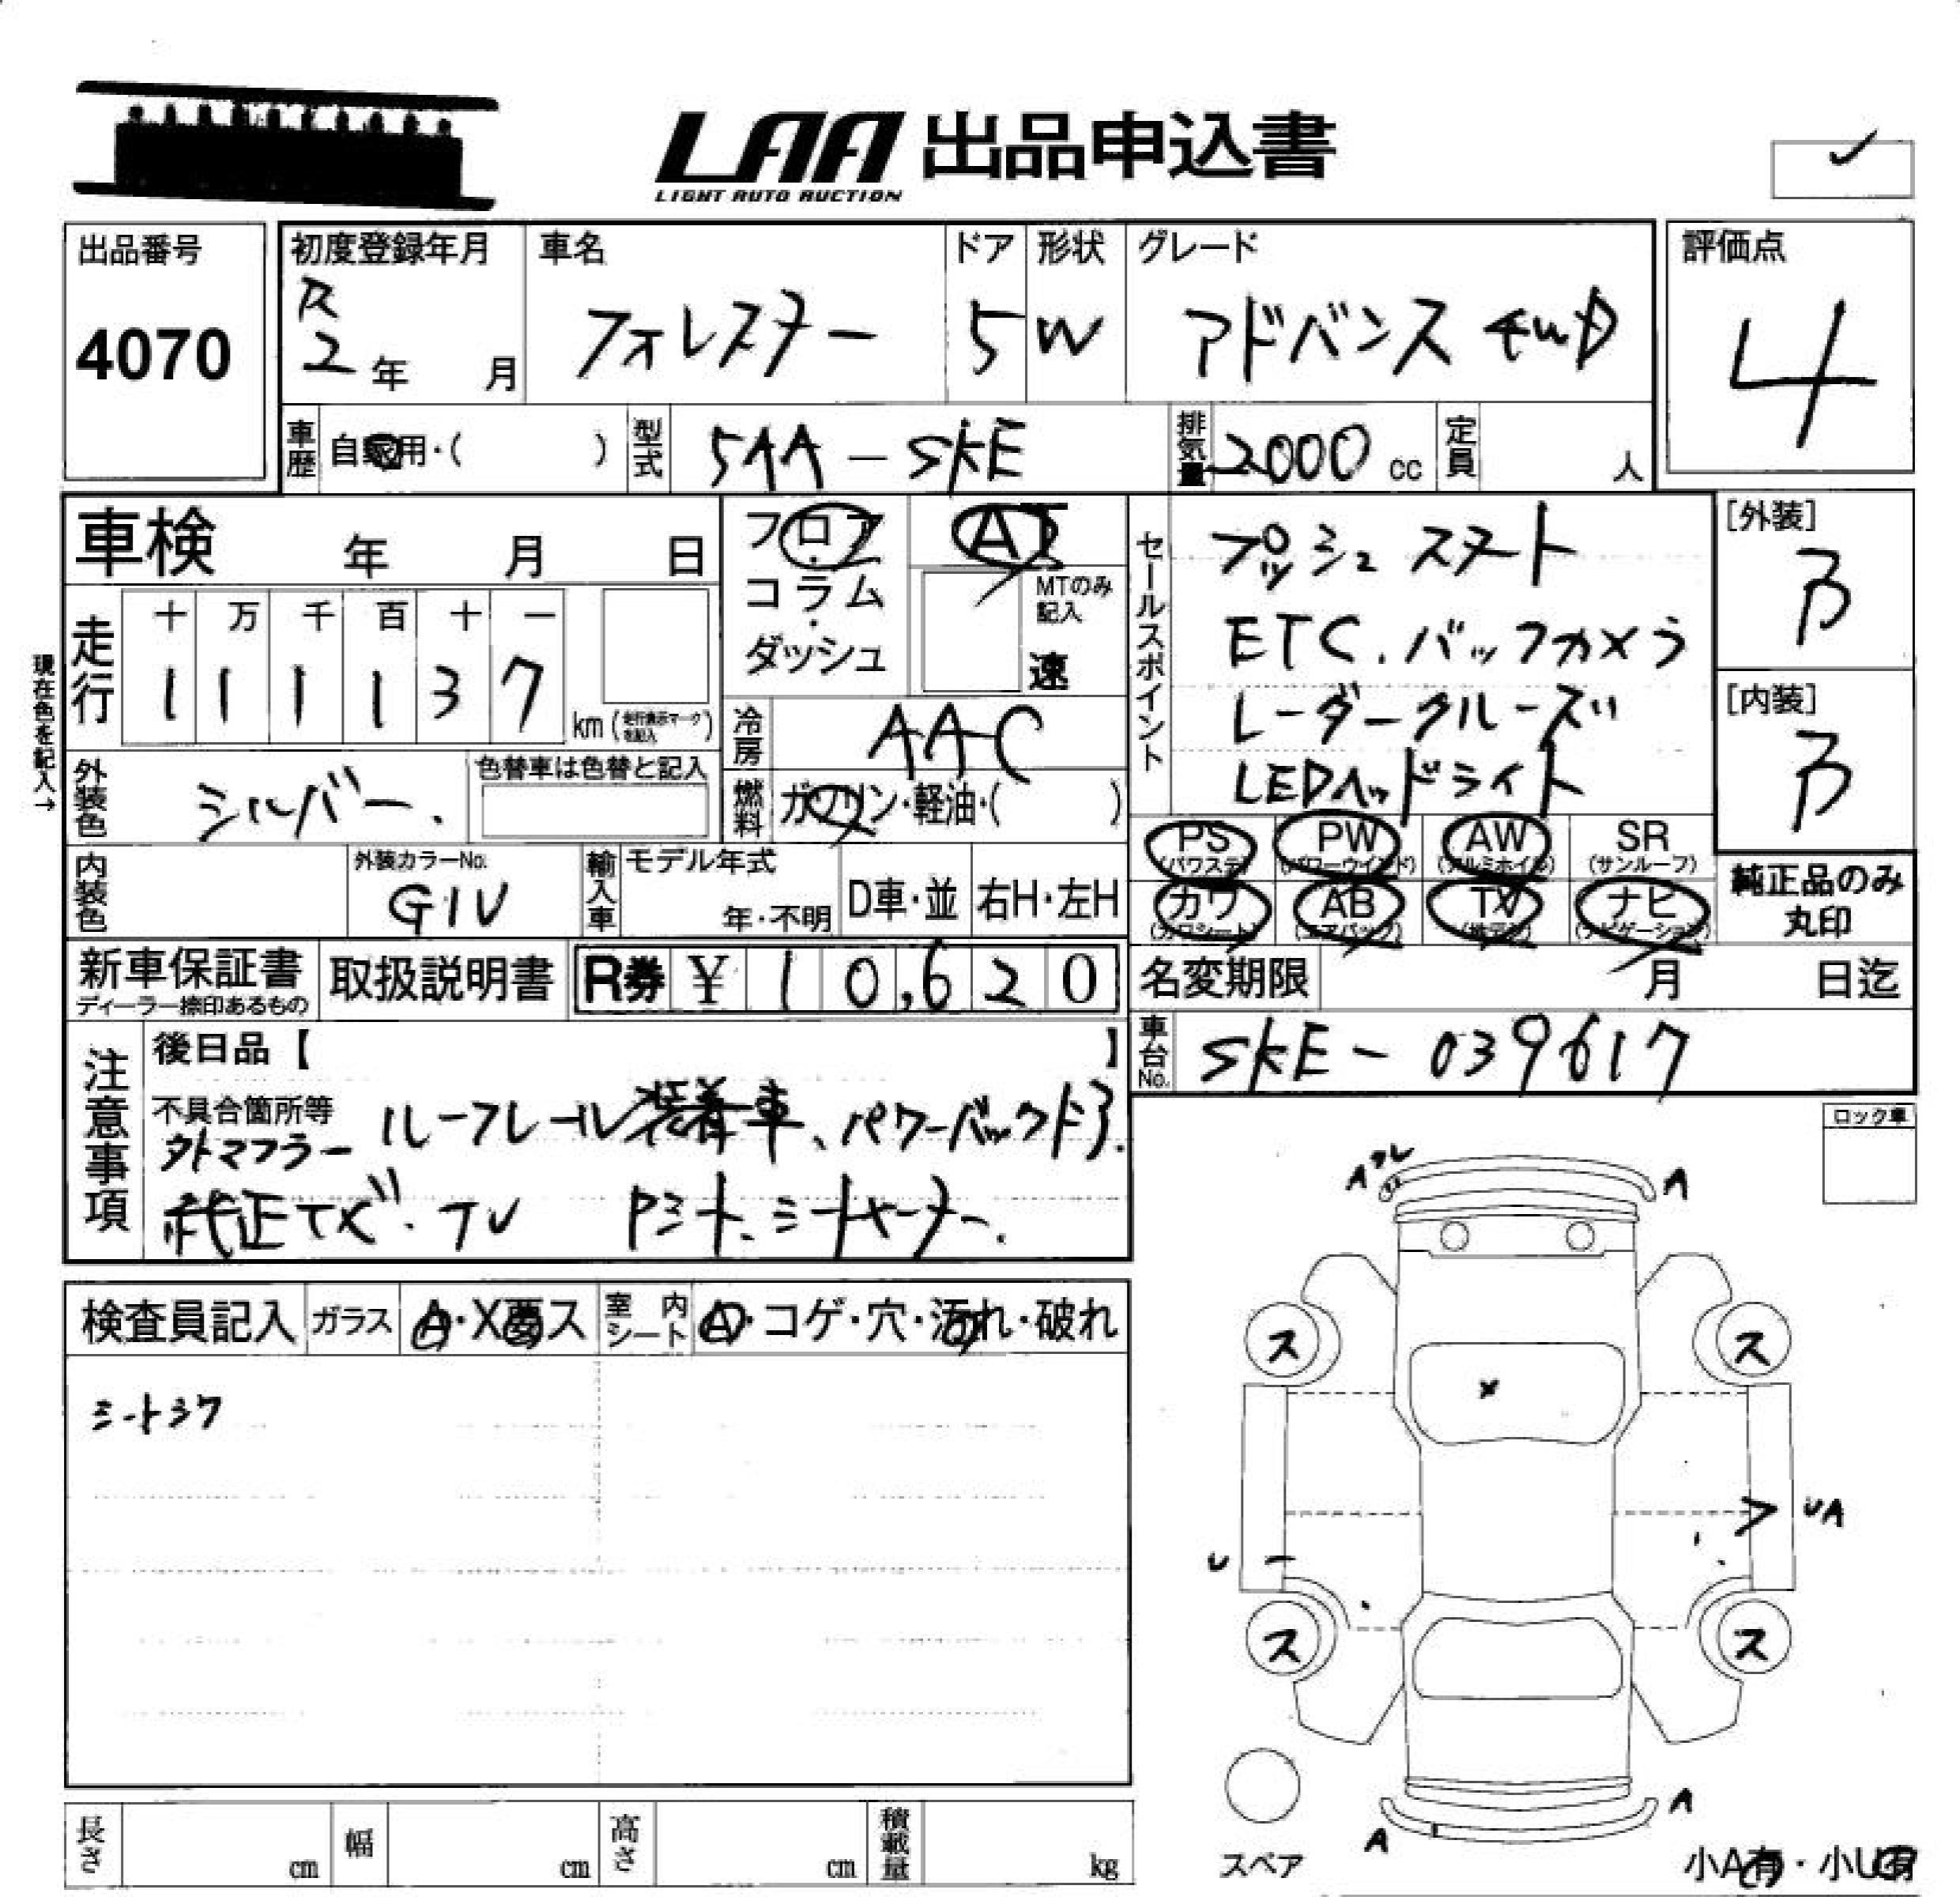 LAA 出品申込書
LIGHT AUTO AUCTION
出品番号
4070
初度登録年月
R
2年 月
車名
フォレスター
ドア
5
形状
W
グレード
アドバンス 4WD
評価点
4
車歴 自家用・( )
型式 5AA-SKE
排気量 2000 cc
定員 人
車検 年 月 日
走行
十 万 千 百 十 一
1 1 1 1 3 7
km (走行表示マークを記入)
現在色を記入→
外装色 シルバー.
色替車は色替と記入
内装色
外装カラーNo.
G1U
輸入車
モデル年式
年・不明
D車・並
右H・左H
フロア
・
コラム
・
ダッシュ
AT
MTのみ
記入
速
冷房 AAC
燃料 ガソリン・軽油・( )
セールスポイント
プッシュスタート
ETC.バックカメラ
レーダークルーズ
LEDヘッドライト
PS
(パワステ)
PW
(パワーウインド)
AW
(アルミホイル)
SR
(サンルーフ)
カワ
(カワシート)
AB
(エアバック)
TV
(地デジ)
ナビ
(ナビゲーション)
[外装]
B
[内装]
B
純正品のみ
丸印
新車保証書
ディーラー捺印あるもの
取扱説明書
R券 ¥ 10,620
名変期限 月 日迄
車台No. SKE-039617
注意事項
後日品【 】
不具合箇所等
ルーフレール装着車、パワーバックドア.
外マフラー
純正ナビ・TV Pシート.シートヒーター.
検査員記入
ガラス A・X要ス
室内シート A・コゲ・穴・汚れ・破れ
シートシワ
ロック車
A ワレ
A
ス
ス
X
UA
U
ス
ス
A
A
スペア
小A有・小U有
長さ cm
幅 cm
高さ cm
積載量 kg